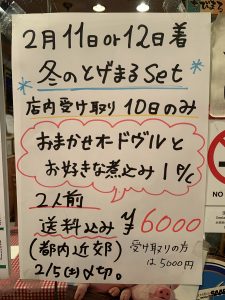 2月11日or12日着
*冬のとげまるset*
店内受け取り10日のみ
おまかせオードヴルと
お好きな煮込み1P/C
2人前
送料込み ¥6000
(都内近郊) 受け取りの方
は5000円
2/5(土)〆切。
NO